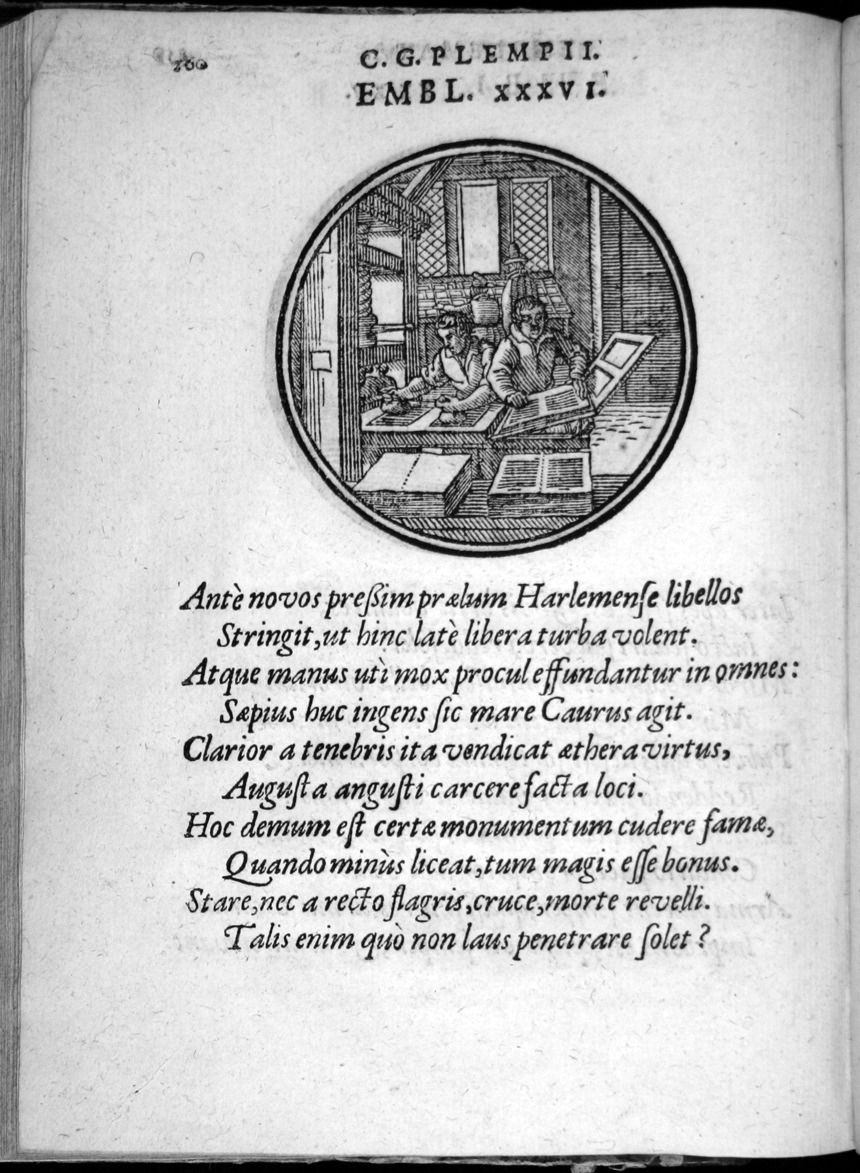 160
C. G. PLEMPII.
EMBL. XXXVI.
Antè novos preßim prælum Harlemenſe libellos
Stringit, ut hinc latè libera turba volent.
Atque manus utì mox procul effundantur in omnes:
Sæpius huc ingens ſic mare Caurus agit.
Clarior a tenebris ita vendicat æthera virtus,
Auguſta anguſti carcere facta loci.
Hoc demum eſt certæ monumentum cudere famæ,
Quando minùs liceat, tum magis eſſe bonus.
Stare, nec a recto flagris, cruce, morte revelli.
Talis enim quò non laus penetrare ſolet?